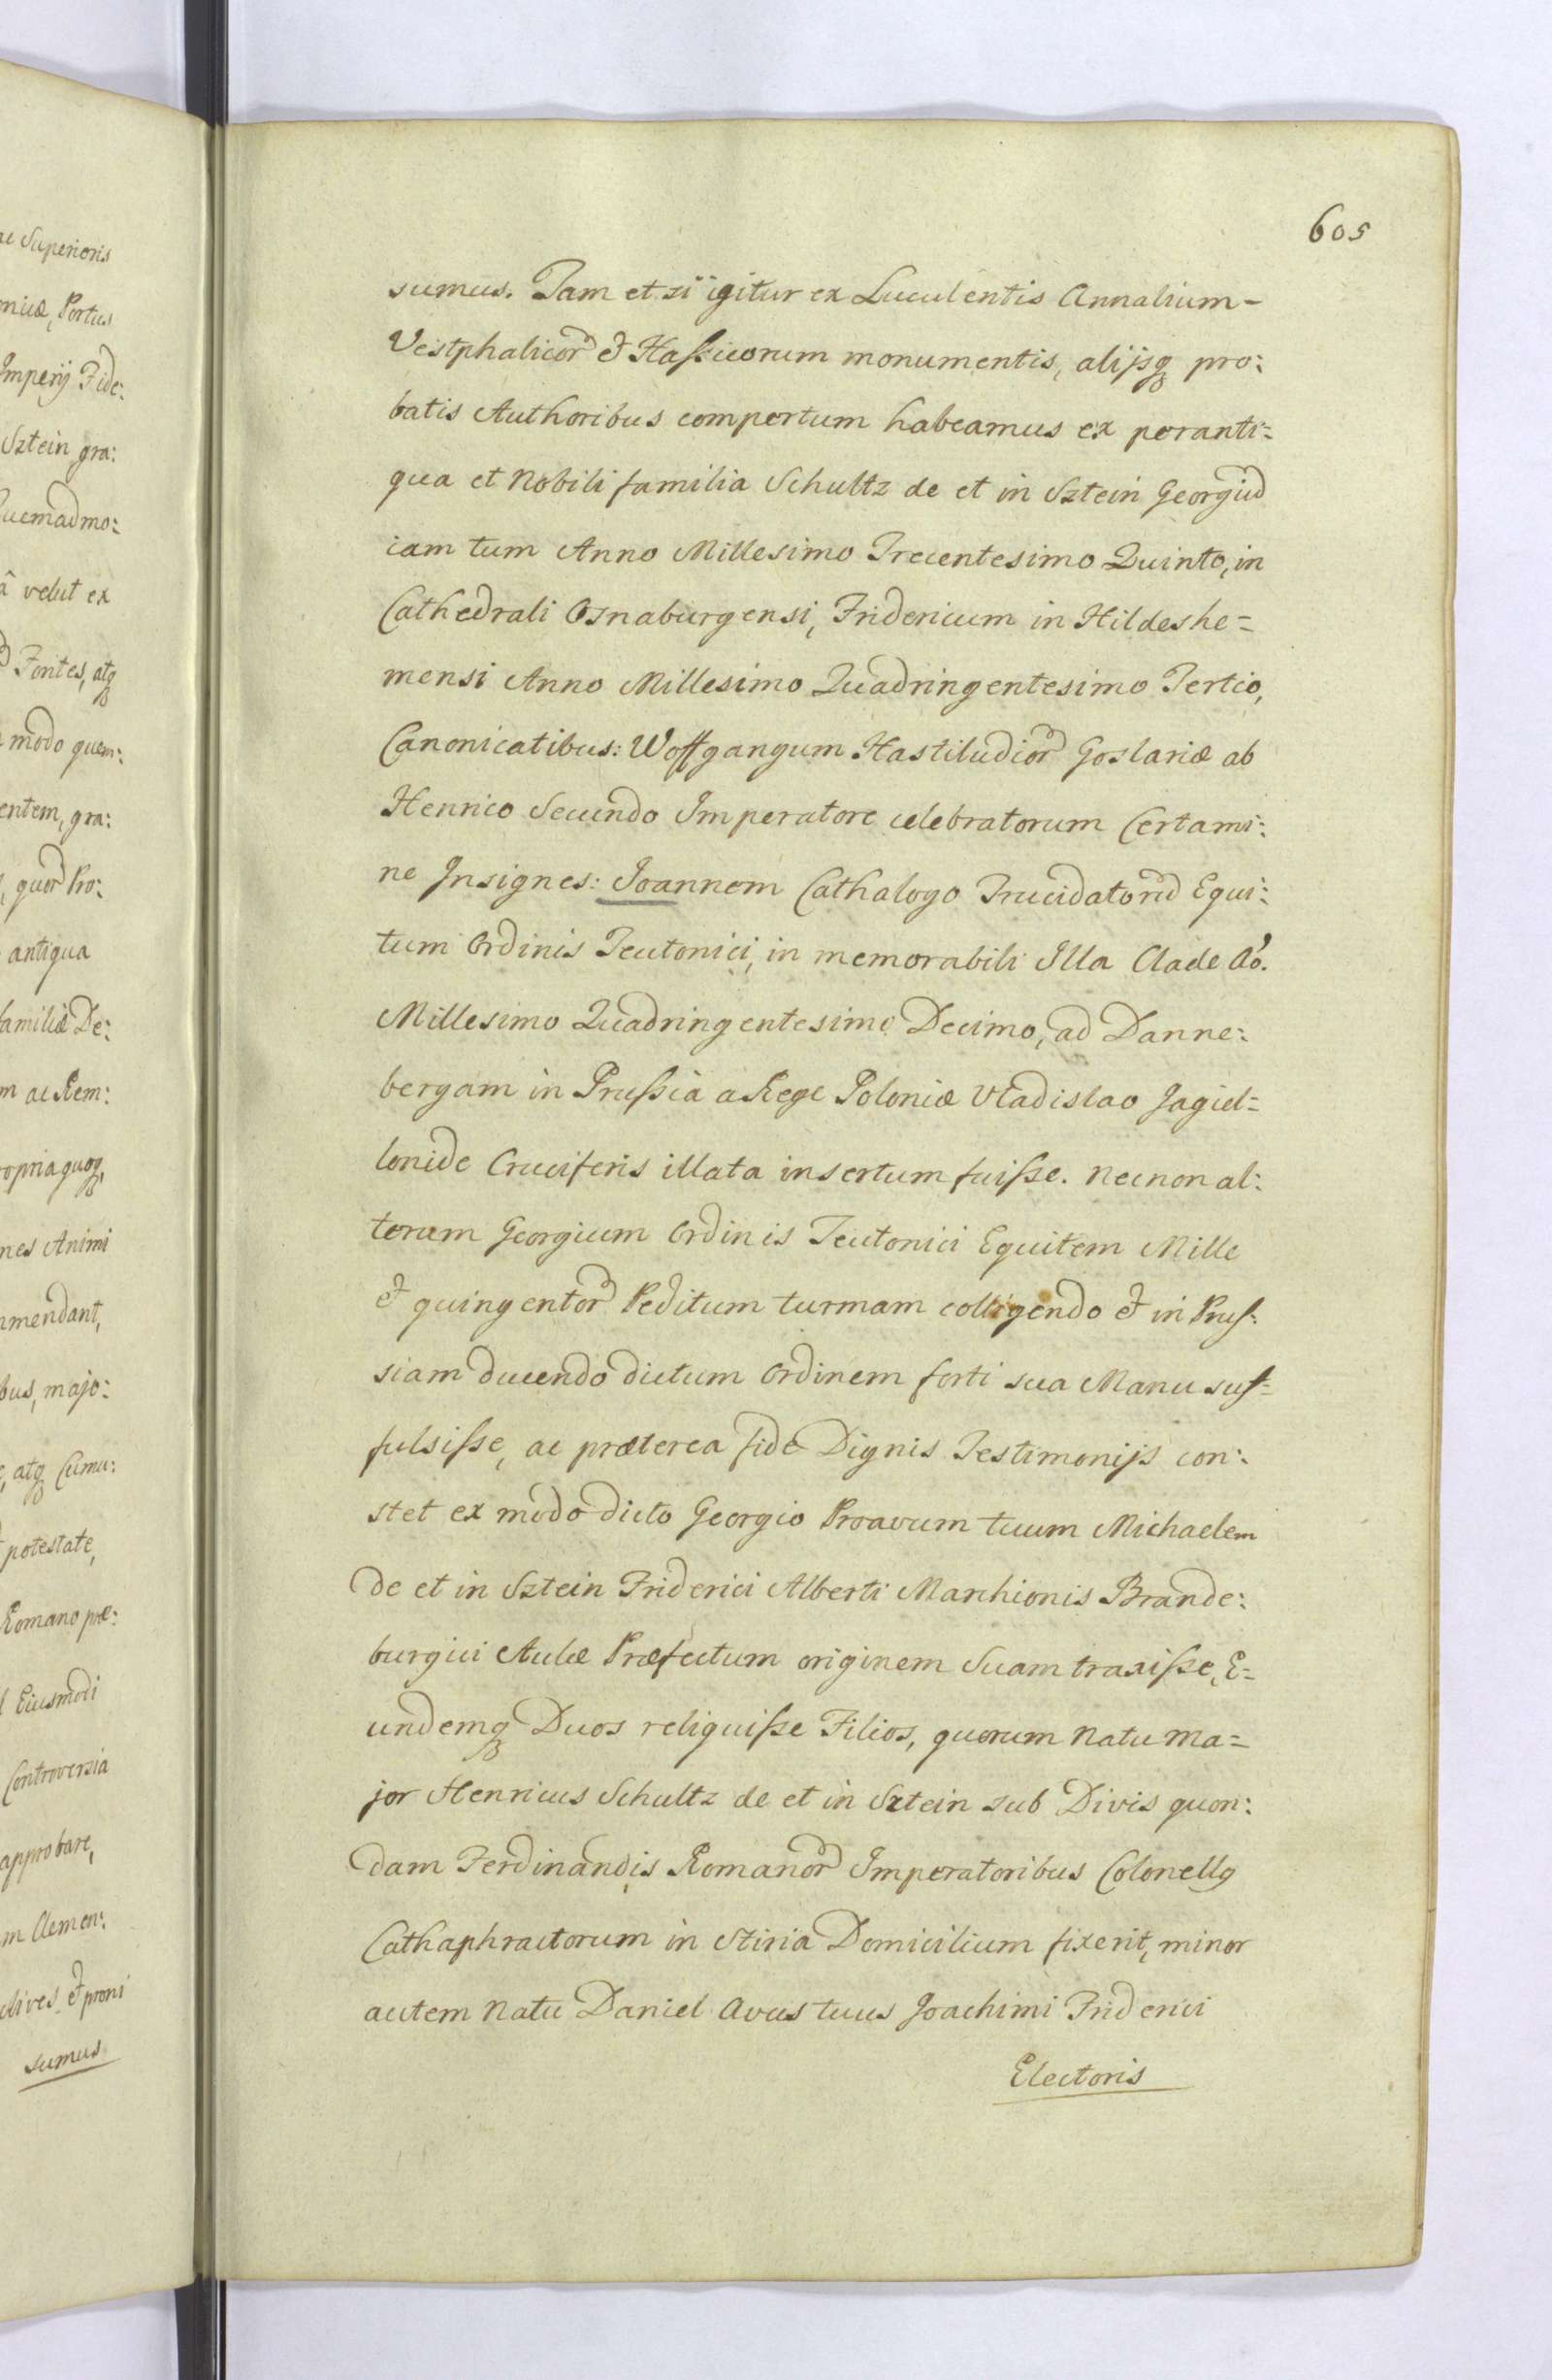 605
sumus. Tam et si igitur ex Luculentis Annalium-
Vestphalicor & Hassicorum monumentis, alijsq pro:
batis Authoribus compertum habeamus ex peranti=
qua et Nobili familia Schultz de et in Sztein Georgiu
iam tum Anno Millesimo Trecentesimo Quinto, in
Cathedrali Osnaburgensi, Fridericum in Hildeshe=
mensi Anno Millesimo Quadringentesimo Tertio,
Canonicatibus: Woffgangum Hastiludior Goslariæ ab
Henrico Secundo Imperatore celebratorum Certami:
ne Insignes: Joannem Cathalogo Trucidatoru Equi:
tum Ordinis Teutonici, in memorabili Illa Clade Ao.
Millesimo Quadringentesimo Decimo, ad Danne:
bergam in Prussia a Rege Poloniæ Vladislao Jagiel=
lonide Cruciferis illata insertum fuisse. necnon al:
terum Georgium Ordinis Teutonici Equitem Mille
& quingentor Peditum turmam colligendo & in Prus:
siam ducendo dictum Ordinem forti sua Manu suf=
fulsisse, ac præterea fide Dignis Testimonijs con:
stet ex modo dicto Georgio Proavum tuum Michaelem
de et in Sztein Friderici Alberti Marchionis Brande:
burgici Aulæ Præfectum originem Suam traxisse, E=
undemq Duos reliquisse Filios, quorum Natu Ma=
jor Henricus Schultz de et in Sztein sub Divis quon:
dam Ferdinandis Romanor Imperatoribus Colonellg
Cathaphractorum in Stiria Domicilium fixerit, minor
autem Natu Daniel Avus tuus Joachimi Friderici
Electoris
ac Superioris
niæ, Portus
Imperij Fide:
Sztein gra:
Quemadmo:
â velut ex
Fontes, atq
modo quem:
entem, gra:
quor Pro:
antiqua
familiæ De:
m ac Rem:
ropria quoq,
nes Animi
mmendant,
bus, majo:
, atq Cumu:
potestate,
Romano præ:
Eiusmodi
Controversia
approbare,
m Clemen:
clives & proni
sumus